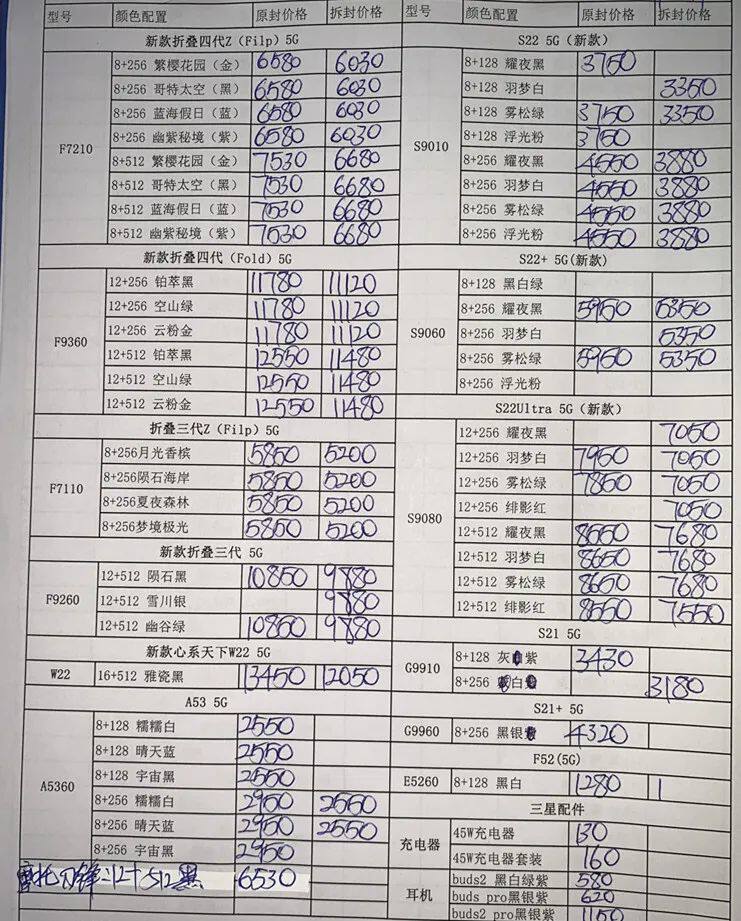 型号 颜色配置 原封价格 拆封价格
新款折叠四代Z（Filp）5G
F7210
8+256 繁樱花园（金） 6580 6030
8+256 哥特太空（黑） 6580 6030
8+256 蓝海假日（蓝） 6580 6030
8+256 幽紫秘境（紫） 6580 6030
8+512 繁樱花园（金） 7530 6680
8+512 哥特太空（黑） 7530 6680
8+512 蓝海假日（蓝） 7530 6680
8+512 幽紫秘境（紫） 7530 6680
新款折叠四代（Fold）5G
F9360
12+256 铂萃黑 11780 11120
12+256 空山绿 11780 11120
12+256 云粉金 11780 11120
12+512 铂萃黑 12550 11480
12+512 空山绿 12550 11480
12+512 云粉金 12550 11480
折叠三代Z（Filp）5G
F7110
8+256月光香槟 5850 5200
8+256陨石海岸 5850 5200
8+256夏夜森林 5850 5200
8+256梦境极光 5850 5200
新款折叠三代 5G
F9260
12+512 陨石黑 10850 9880
12+512 雪川银 9880
12+512 幽谷绿 10850 9880
新款心系天下W22 5G
W22 16+512 雅瓷黑 13450 12050
A53 5G
A5360
8+128 糯糯白 2550
8+128 晴天蓝 2550
8+128 宇宙黑 2550
8+256 糯糯白 2950 2550
8+256 晴天蓝 2950 2550
8+256 宇宙黑 2950
摩托刀锋二12+512黑 6530
型号 颜色配置 原封价格 拆封价格
S22 5G（新款）
S9010
8+128 耀夜黑 3750
8+128 羽梦白 3350
8+128 雾松绿 3750 3350
8+128 浮光粉 3750
8+256 耀夜黑 4550 3880
8+256 羽梦白 4550 3880
8+256 雾松绿 4550 3880
8+256 浮光粉 4550 3880
S22+ 5G(新款)
S9060
8+128 黑白绿
8+256 耀夜黑 5950 5350
8+256 羽梦白 5350
8+256 雾松绿 5950 5350
8+256 浮光粉
S22Ultra 5G（新款）
S9080
12+256 耀夜黑 7050
12+256 羽梦白 7950 7050
12+256 雾松绿 7850 7050
12+256 绯影红 7050
12+512 耀夜黑 8550 7680
12+512 羽梦白 8650 7680
12+512 雾松绿 8650 7680
12+512 绯影红 8550 7550
S21 5G
G9910
8+128 灰紫 3430
8+256 白 3180
S21+ 5G
G9960 8+256 黑银 4320
F52(5G)
E5260 8+128 黑白 1280 1
三星配件
充电器
45W充电器 130
45W充电器套装 160
耳机
buds2 黑白绿紫 580
buds pro黑银紫 620
buds2 pro黑银紫 1150